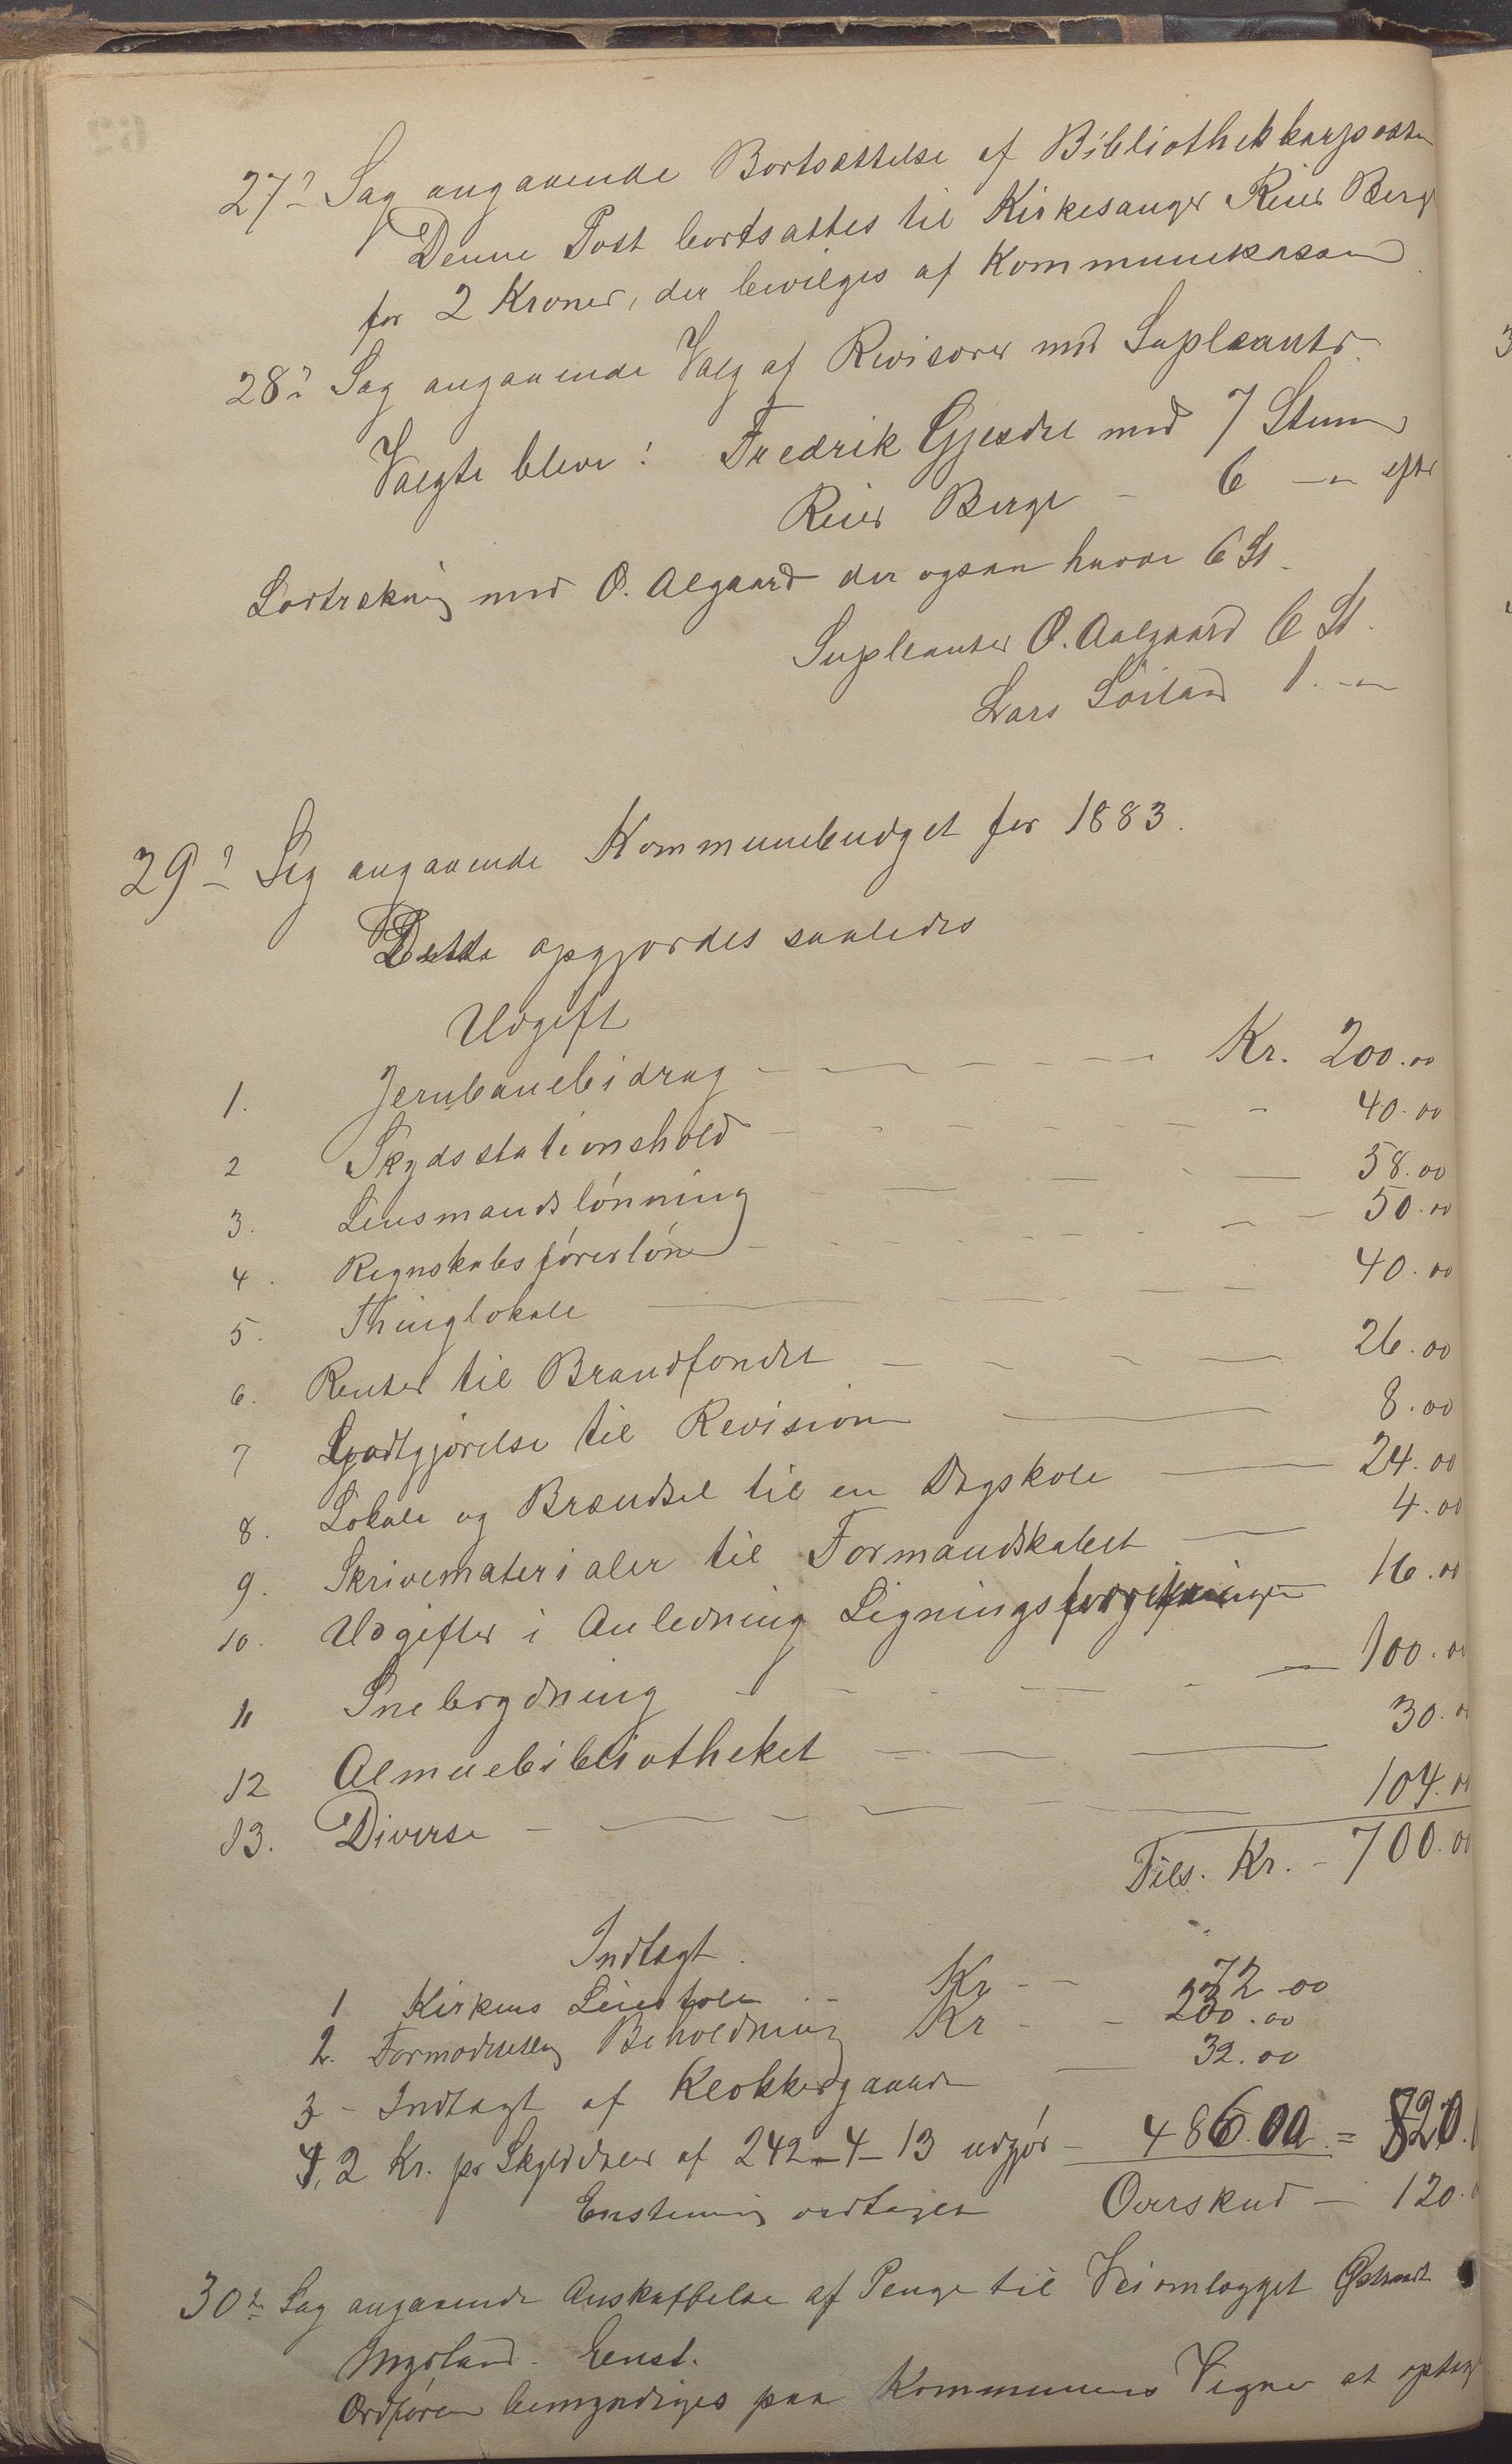 27? Sag angaaende Bortsættelse af Bibliothekkarposten
Denne Post bortsattes til Kirkesanger Reier Berge
for 2 Kroner, der bevilges af Kommunekassen
28? Sag angaaende Valg af Revisorer med Supleanter.
Valgte bleve: Fredrik Gjesdal med 7 Stemmer
Reier Berge - 6 — efter
Lodtrækning med O. Algaard der ogsaa havde 6 St.
Supleanter O. Aalgaard 6 St.
Lars Söiland 1. —
29? Sag angaaende Kommunebudget for 1883.
Dette opgjordes saaledes
Udgift
1. Jernbanebidrag Kr. 200.00
2 Skydsstationshold - 40.00
3. Lensmandslönning — 58.00
4. Regnskabsförerlön — 50.00
5. Thinglokale — 40.00
6. Renter til Brandfondet — 26.00
7 Godtgjörelse til Revision — 8.00
8. Lokale og Brændsel til en Dagskole — 24.00
9. Skrivematerialer til Formandskabet — 4.00
10. Udgifter i Anledning Ligningsforretningen 16.00
11 Snebrydning — 100.00
12 Almuebibliotheket — 30.00
13. Diverse — 104.00
Tils. Kr. - 700.00
Indtægt.
1 Kirkens Kr - - 72.00
2. Formodentlig Beholdning Kr - - 230.00
3 - Indtægt af Klokkergaarden — 32.00
4, 2 Kr. pr Skylddaler af 242-4-13 udgjör - 486.00 = 820.
Enstemmig vedtaget Overskud — 120.
30? Sag angaaende Anskaffelse af Penge til Veiomlægget
Myrland. Enst.
Ordfören bemyndiges paa Kommunens Vegne at optage